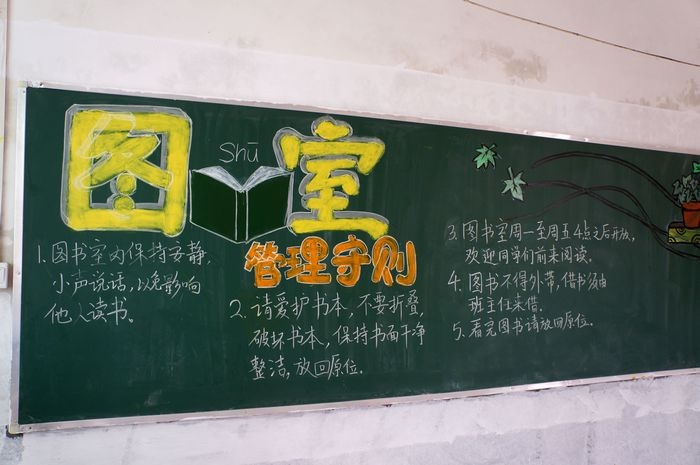 图 Shū 室
管理守则
1.图书室内保持安静,
小声说话,以免影响
他人读书。
2.请爱护书本,不要折叠,
破坏书本,保持书面干净
整洁,放回原位。
3.图书室周一至周五4点之后开放,
欢迎同学们前来阅读。
4.图书不得外带,借书须由
班主任来借。
5.看完图书请放回原位。